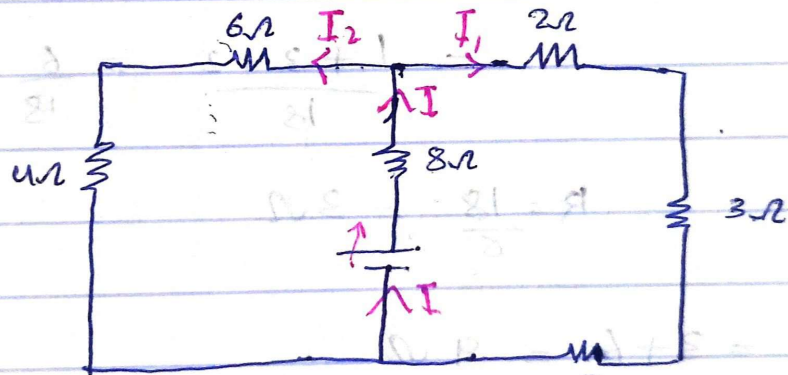 6Ω I₂ I₁ 2Ω
I
4Ω 8Ω 3Ω
I